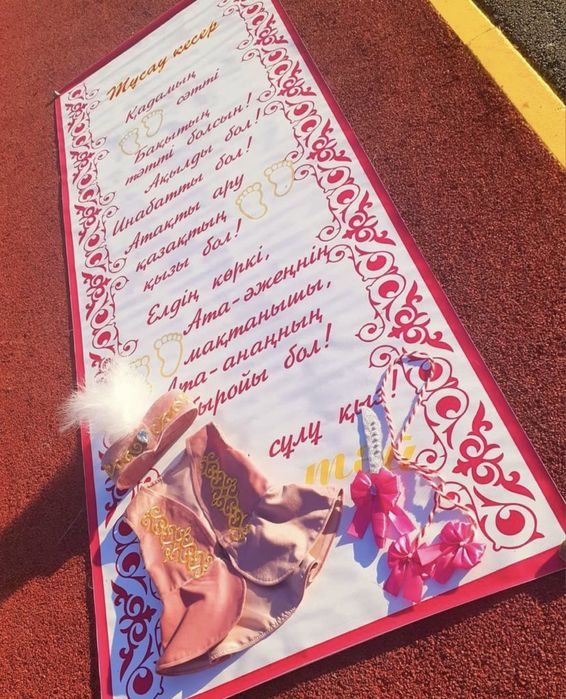 Тұсау кесер
Қадамың
сәтті
Бақытың
тәтті болсын!
Ақылды бол!
Инабатты бол!
Атақты ару
қазақтың
қызы бол!
Елдің көркі,
Ата-әжеңнің
мақтанышы,
Ата-анаңның
абыройы бол!
сұлу қыз!